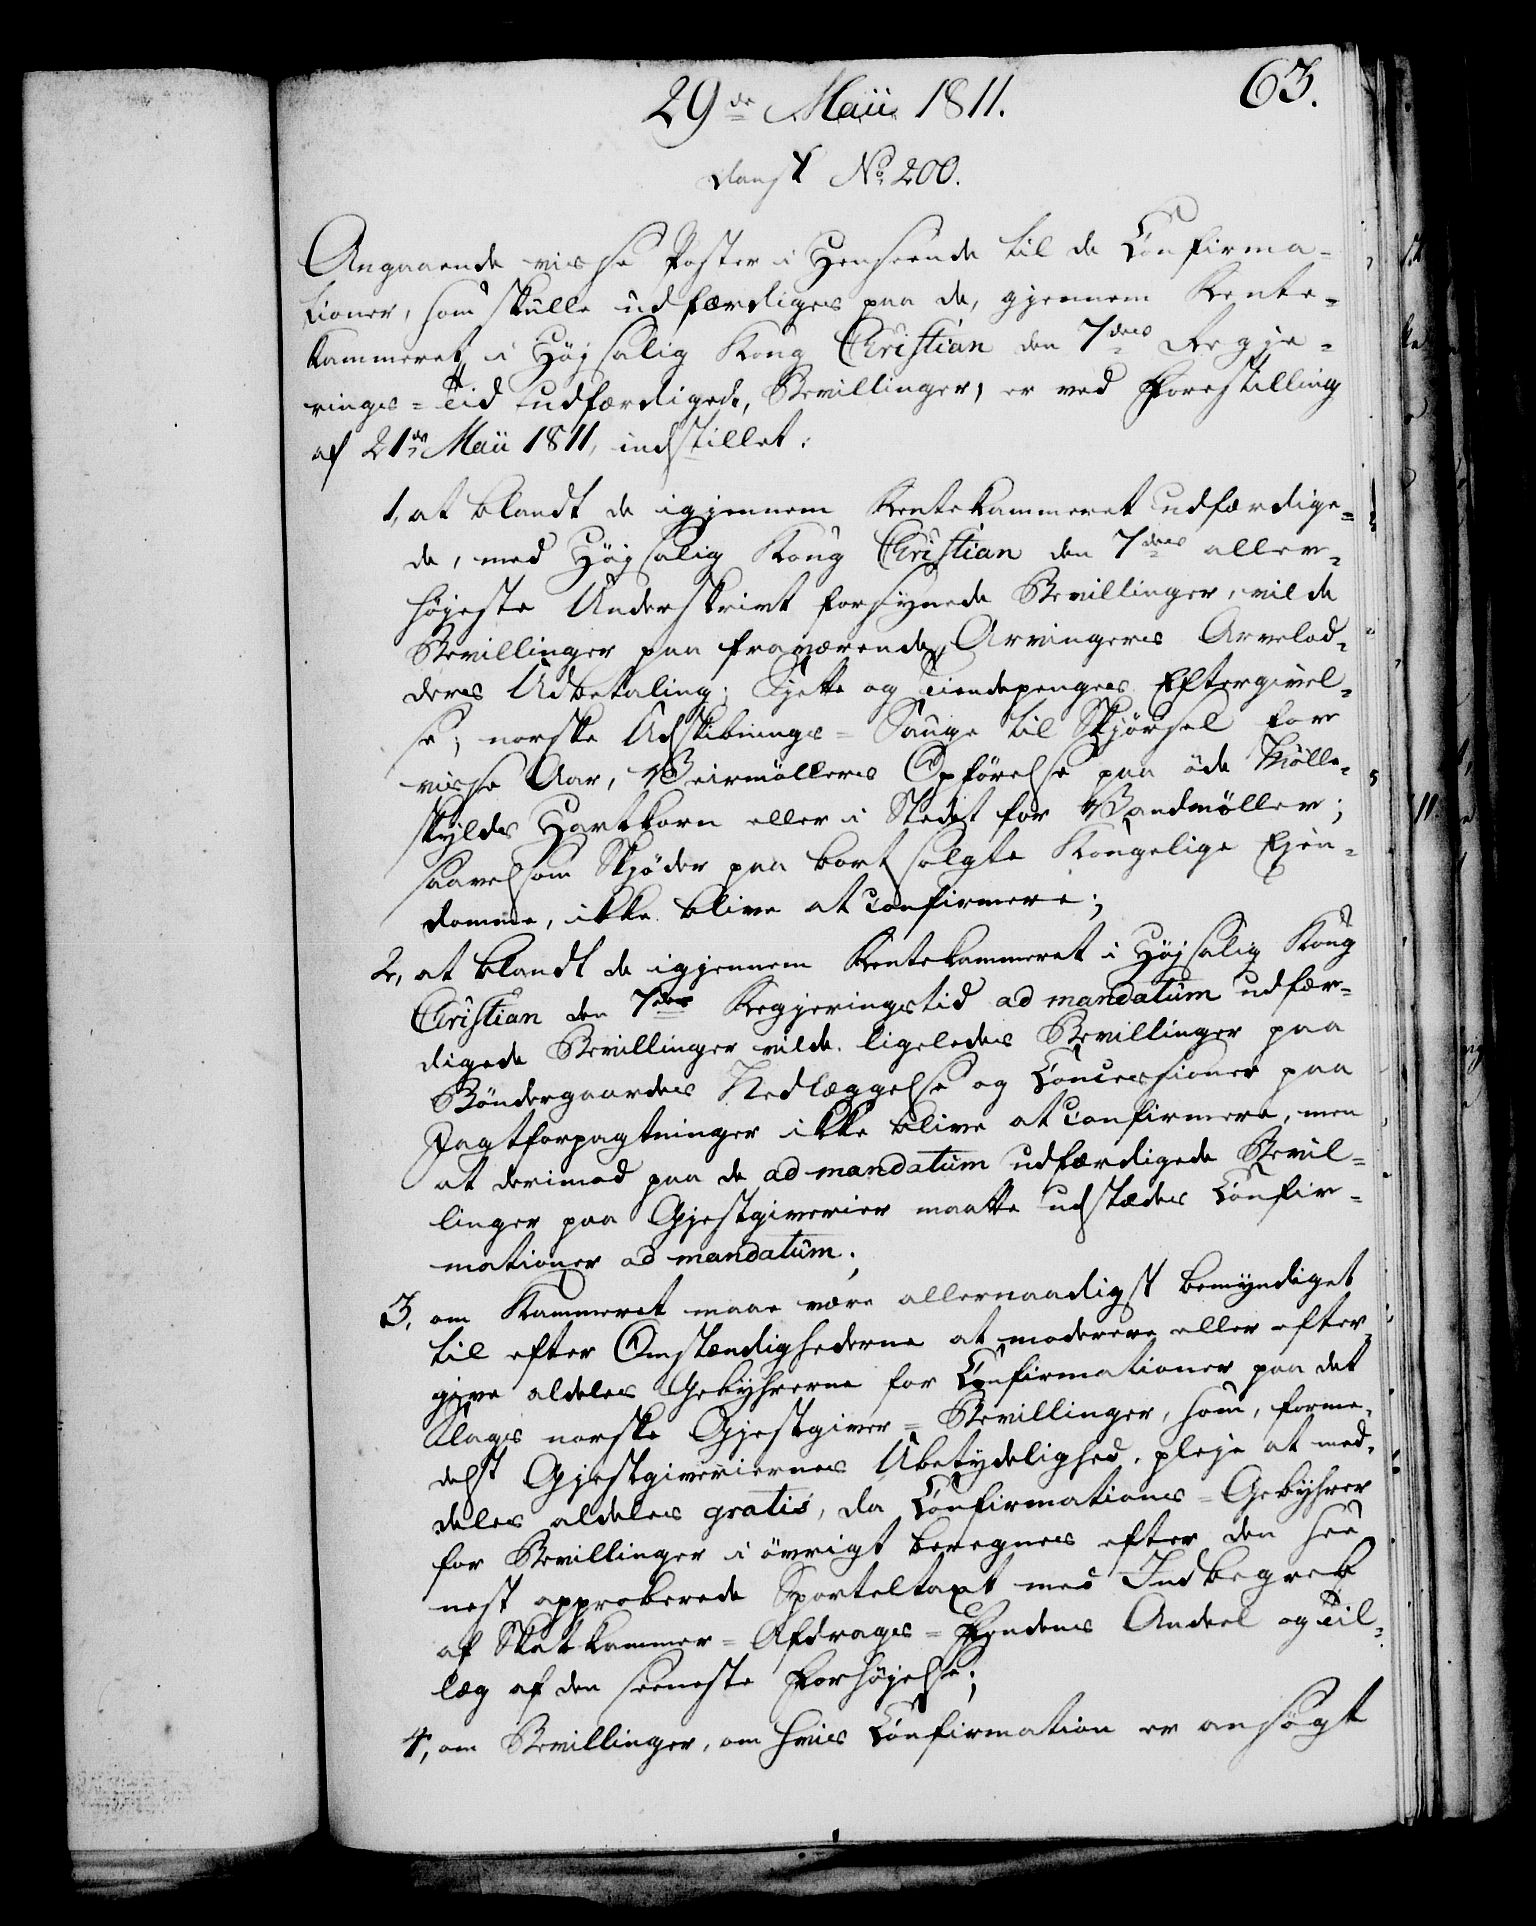 63.
29de Maii 1811.
dansk No 200.
Angaaende visse Poster i Henseende til de Confirma-
tioner, som skulle udfærdiges paa de, gjennem Rente-
kammeret i Højsalig Kong Christian den 7des Regje-
rings-Tid udfærdigede, Bevillinger, er ved Forestilling
af 21de Maii 1811, indstillet:
1, at blandt de igjennem Rentekammeret udfærdige-
de, med Højsalig Kong Christian den 7des aller-
højeste Underskrivt forsynede Bevillinger, vil de
Bevillinger paa fraværende Arvingers Arvelod-
ders Udbetaling; Sjette og Tiendepenges Eftergivel-
se; norske Udskibnings-Sauge til Skjørsel for
visse Aar, Veirmøllers Opførelse paa øde Mølle-
skylds Hartkorn eller i Stedet for Vandmøller;
saavelsom Skjøder paa bortsolgte Kongelige Ejen-
domme, ikke blive at confirmere;
2, at blandt de igjennem Rentekammeret i Højsalig Kong
Christian den 7des Regjeringstid ad mandatum udfær-
digede Bevillinger vilde ligeledes Bevillinger paa
Bøndergaardes Nedlæggelse og Concessioner paa
Jagtforpagtninger ikke blive at confirmere, men
at derimod paa de ad mandatum udfærdigede Bevil-
linger paa Gjestgiverier maatte udstædes Confir-
mationer ad mandatum;
3, om Kammeret maae være allernaadigst bemyndiget
til efter Omstændighederne at moderere eller efter-
give aldeles Gebyhrerne for Confirmationer paa det
Slags norske Gjestgiver-Bevillinger, som, forme-
delst Gjestgiveriernes Ubetydelighed, pleje at med-
deles aldeles gratis, da Confirmations-Gebyhrer
for Bevillinger i øvrigt beregnes efter den see-
nest approberede Sporteltaxt med Indbegreb
af Skatkammer-Afdrages-Fondens Andeel og Til-
læg af den seeneste Forhøjelse;
4, om Bevillinger, om hvis Confirmation er ansøgt